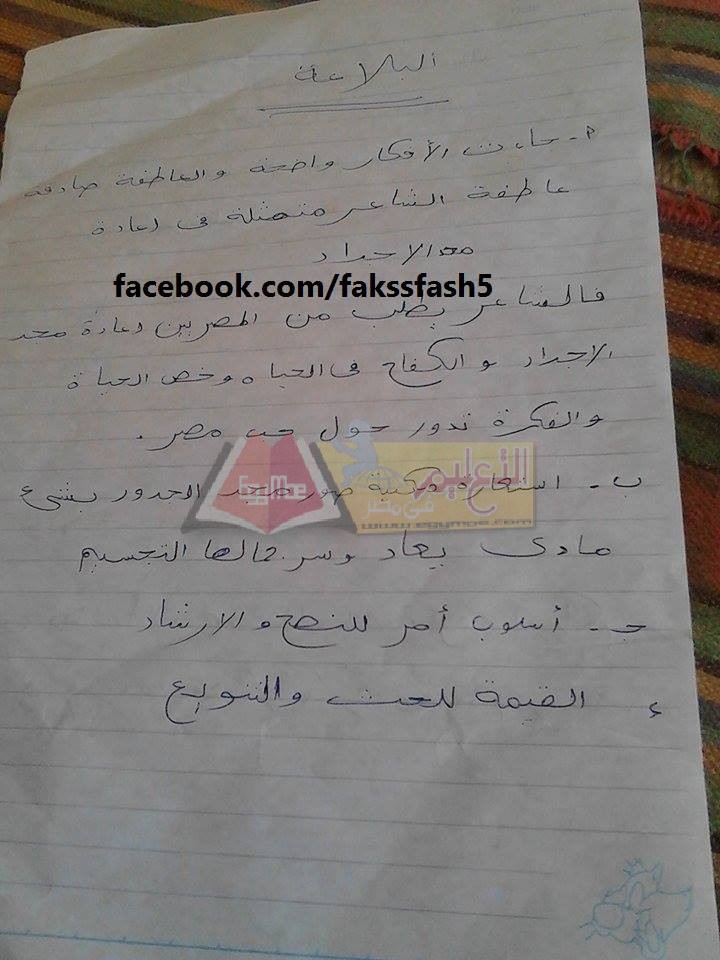 البلاغة
أ- جاءت الأفكار واضحة والعاطفة صادقة
عاطفة الشاعر متمثلة فى إعادة
مجد الاجداد
facebook.com/fakssfash5
فالشاعر يطلب من المصريين إعادة مجد
الاجداد والكفاح فى الحياه وخص الحياة
والفكرة تدور حول حب مصر .
ب- استعارة مكنية صور مجد الجدور بشيء
EgyMoe التعليم فى مصر
www.egymoe.com
مادى يعاد وسر جمالها التجسيم
جـ- أسلوب أمر للنصح والارشاد
ء القيمة للحث والتنويع